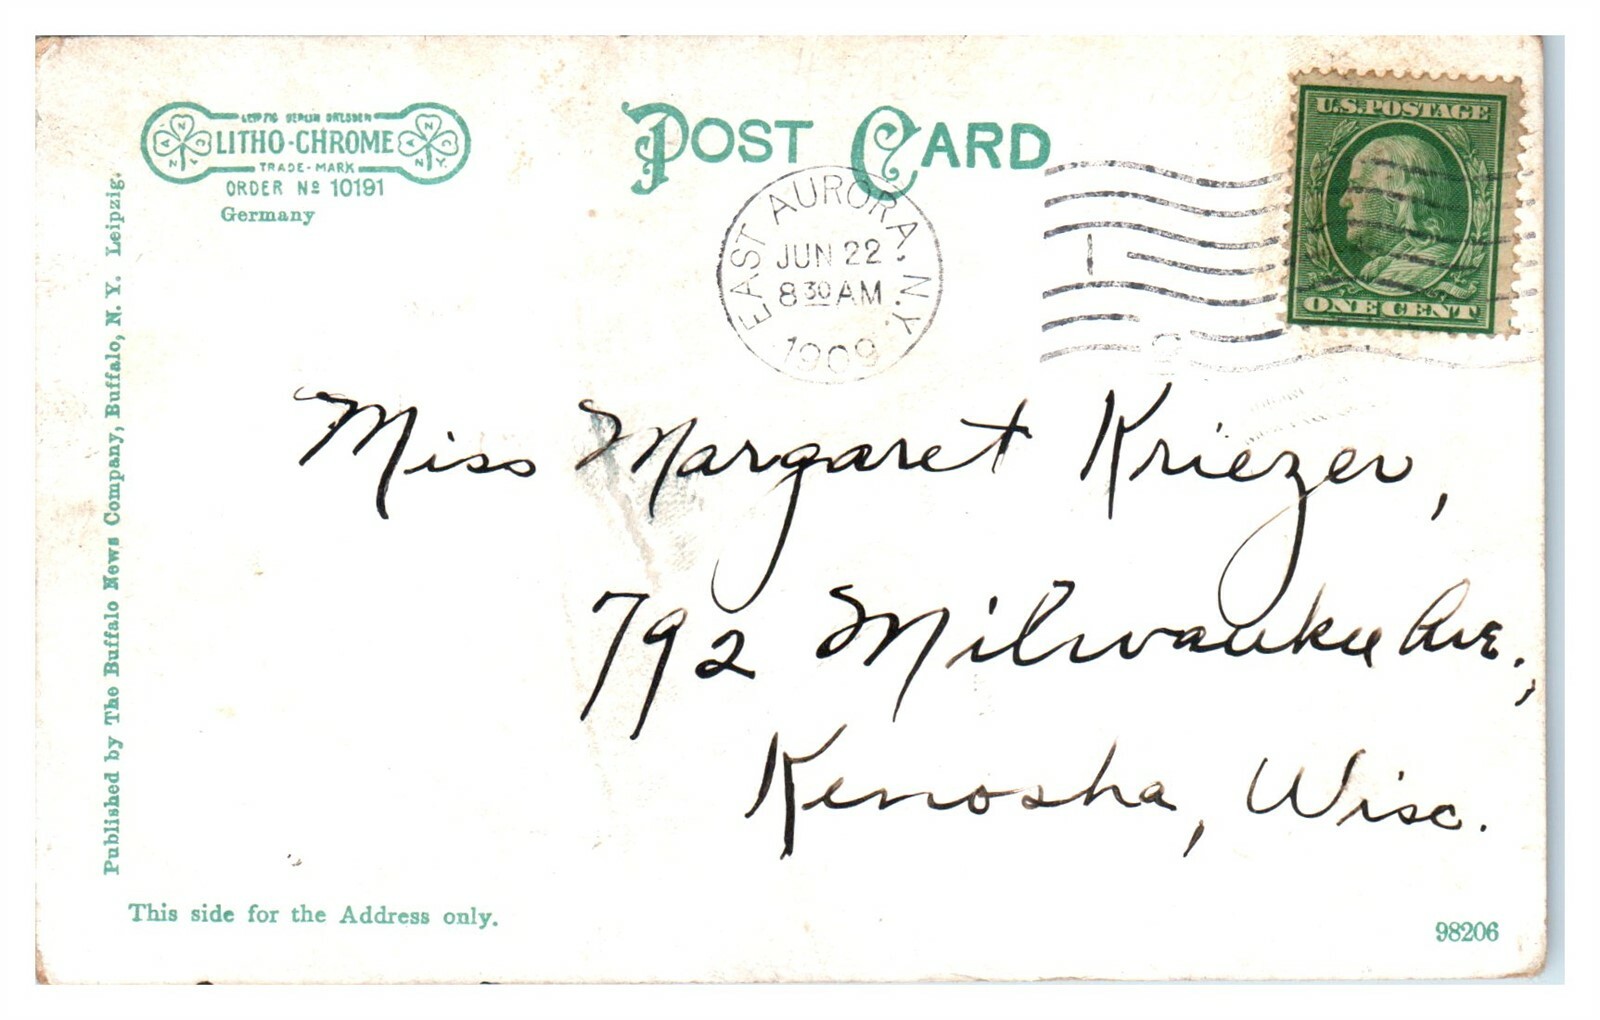 LEIPZIG BERLIN DRESDEN
LITHO-CHROME
TRADE-MARK
ORDER Nº 10191
Germany
POST CARD
U.S. POSTAGE
ONE CENT
EAST AURORA, N.Y.
JUN 22
8 30 AM
1909
1
Miss Margaret Kriezer,
792 Milwaukee Ave.,
Kenosha, Wisc.
Published by The Buffalo News Company, Buffalo, N. Y. Leipzig.
This side for the Address only.
98206